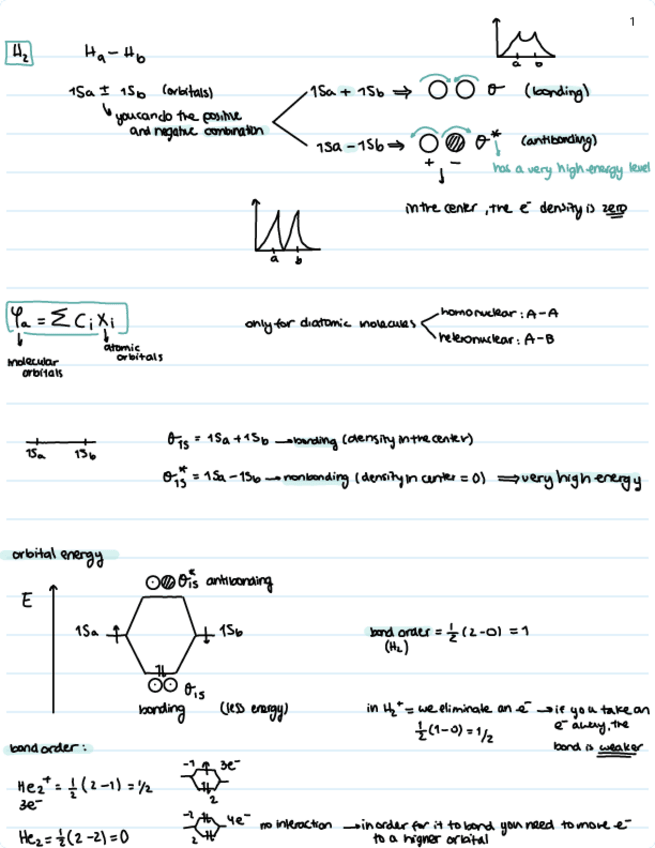 1
H₂
Hₐ – H_b
a b
1Sₐ ± 1S_b (orbitals)
you can do the positive
and negative combination
1Sₐ + 1S_b ⇒ σ (bonding)
1Sₐ – 1S_b ⇒ σ* (antibonding)
+ –
has a very high-energy level
in the center, the e⁻ density is zero
a b
φₐ = Σ Cᵢ Xᵢ
molecular
orbitals
atomic
orbitals
only for diatomic molecules
homonuclear: A-A
heteronuclear: A-B
1Sₐ 1S_b
σ₁s = 1Sₐ + 1S_b → bonding (density in the center)
σ₁s* = 1Sₐ – 1S_b → nonbonding (density in center = 0) ⇒ very high energy
orbital energy
E
σ₁s* antibonding
1Sₐ 1S_b
σ₁s
bonding (less energy)
bond order = 1/2 (2-0) = 1
(H₂)
in H₂⁺ = we eliminate an e⁻ → if you take an
e⁻ away, the
bond is weaker
1/2 (1-0) = 1/2
bond order:
He₂⁺ = 1/2 (2-1) = 1/2
3e⁻
-1 3e⁻
2
He₂ = 1/2 (2-2) = 0
-2 4e⁻
2
no interaction → in order for it to bond you need to move e⁻
to a higher orbital